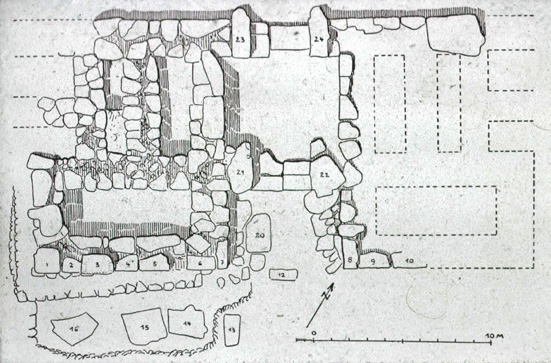 23
24
21
22
20
1
2
3
4
5
6
7
8
9
10
12
16
15
14
13
0
10 M